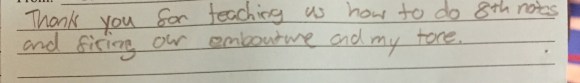 From:
Thank you for teaching us how to do 8th notes
and fixing our embouture and my tone.